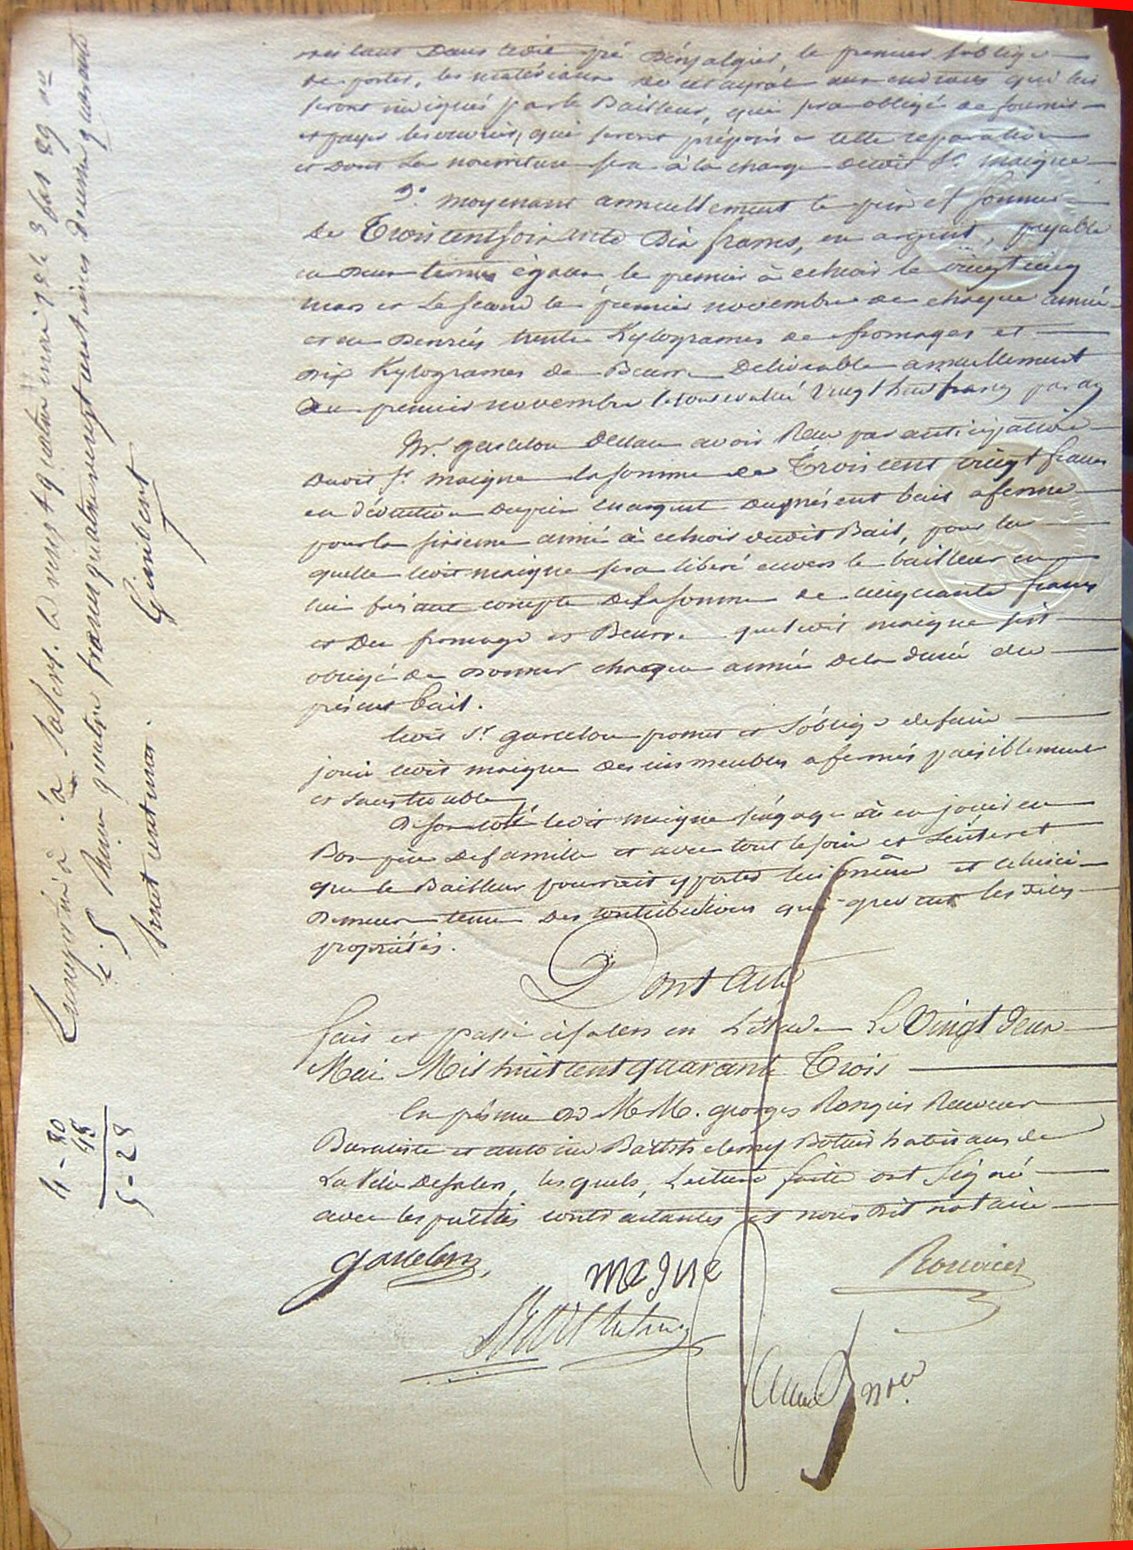 dans ledit pré Benjalgier, le premier s'oblige
de porter, les matériaux de cet ayral aux endroits qui lui
seront indiqués par le Bailleur, qui sera obligé de fournir
et payer les ouvriers, qui seront préposés a cette reparation
et dont la nourriture sera à la charge dudit Sr. maigne
9° moyenant annuellement le prix et somme
De Trois cent soixante dix francs, en argent, payable
en deux termes égaux le premier à echoir le vingt cinq
mars et le second le premier novembre de chaque année
et en denrées trente Kylogrames de fromages et
dix Kylogrames de Beurre Delivrable annuellement
au premier novembre le tout evalué vingt huit francs par an
Mr. garcelon declare avoir Reçu par anticipation
dudit Sr. maigne la somme de Trois cent vingt francs
en déduction du prix en argent du présent bail a ferme
pour la sixieme année à echoir dudit Bail, pour la
quelle ledit maigne sera libéré envers le bailleur en
lui faisant compte de la somme de cinquante francs
et du fromage et Beurre que ledit maigne est
obligé de donner chaque année de la durée du
présent bail.
ledit Sr. garcelon promet et s'oblige de faire
jouir ledit maigne des immeubles afermés paisiblement
et sans trouble
De son coté ledit maigne s'engage à en jouir en
Bon père de famille et avec tout le soin et l'intéret
que le Bailleur pourrait y porter lui même et celui ci
demeure tenu des contributions qui grevent les dites
propriétés.
Dont Acte
fait et passé à salers en L'étude Le Vingt deux
Mai Mil huit cent quarante Trois
En présence de M.M. georges Rongier Receveur
Buraliste et antoine Barthelemy habitans de
La Ville de salers, lesquels, Lecture faite ont signé
avec les parties contractantes et nous dit notaire
garcelon
Megne
Enregistré à Salers. le
quatre francs quatre vingt centimes decime quarante
huit centimes.
Gimbert
4 - 80
48
5 - 28